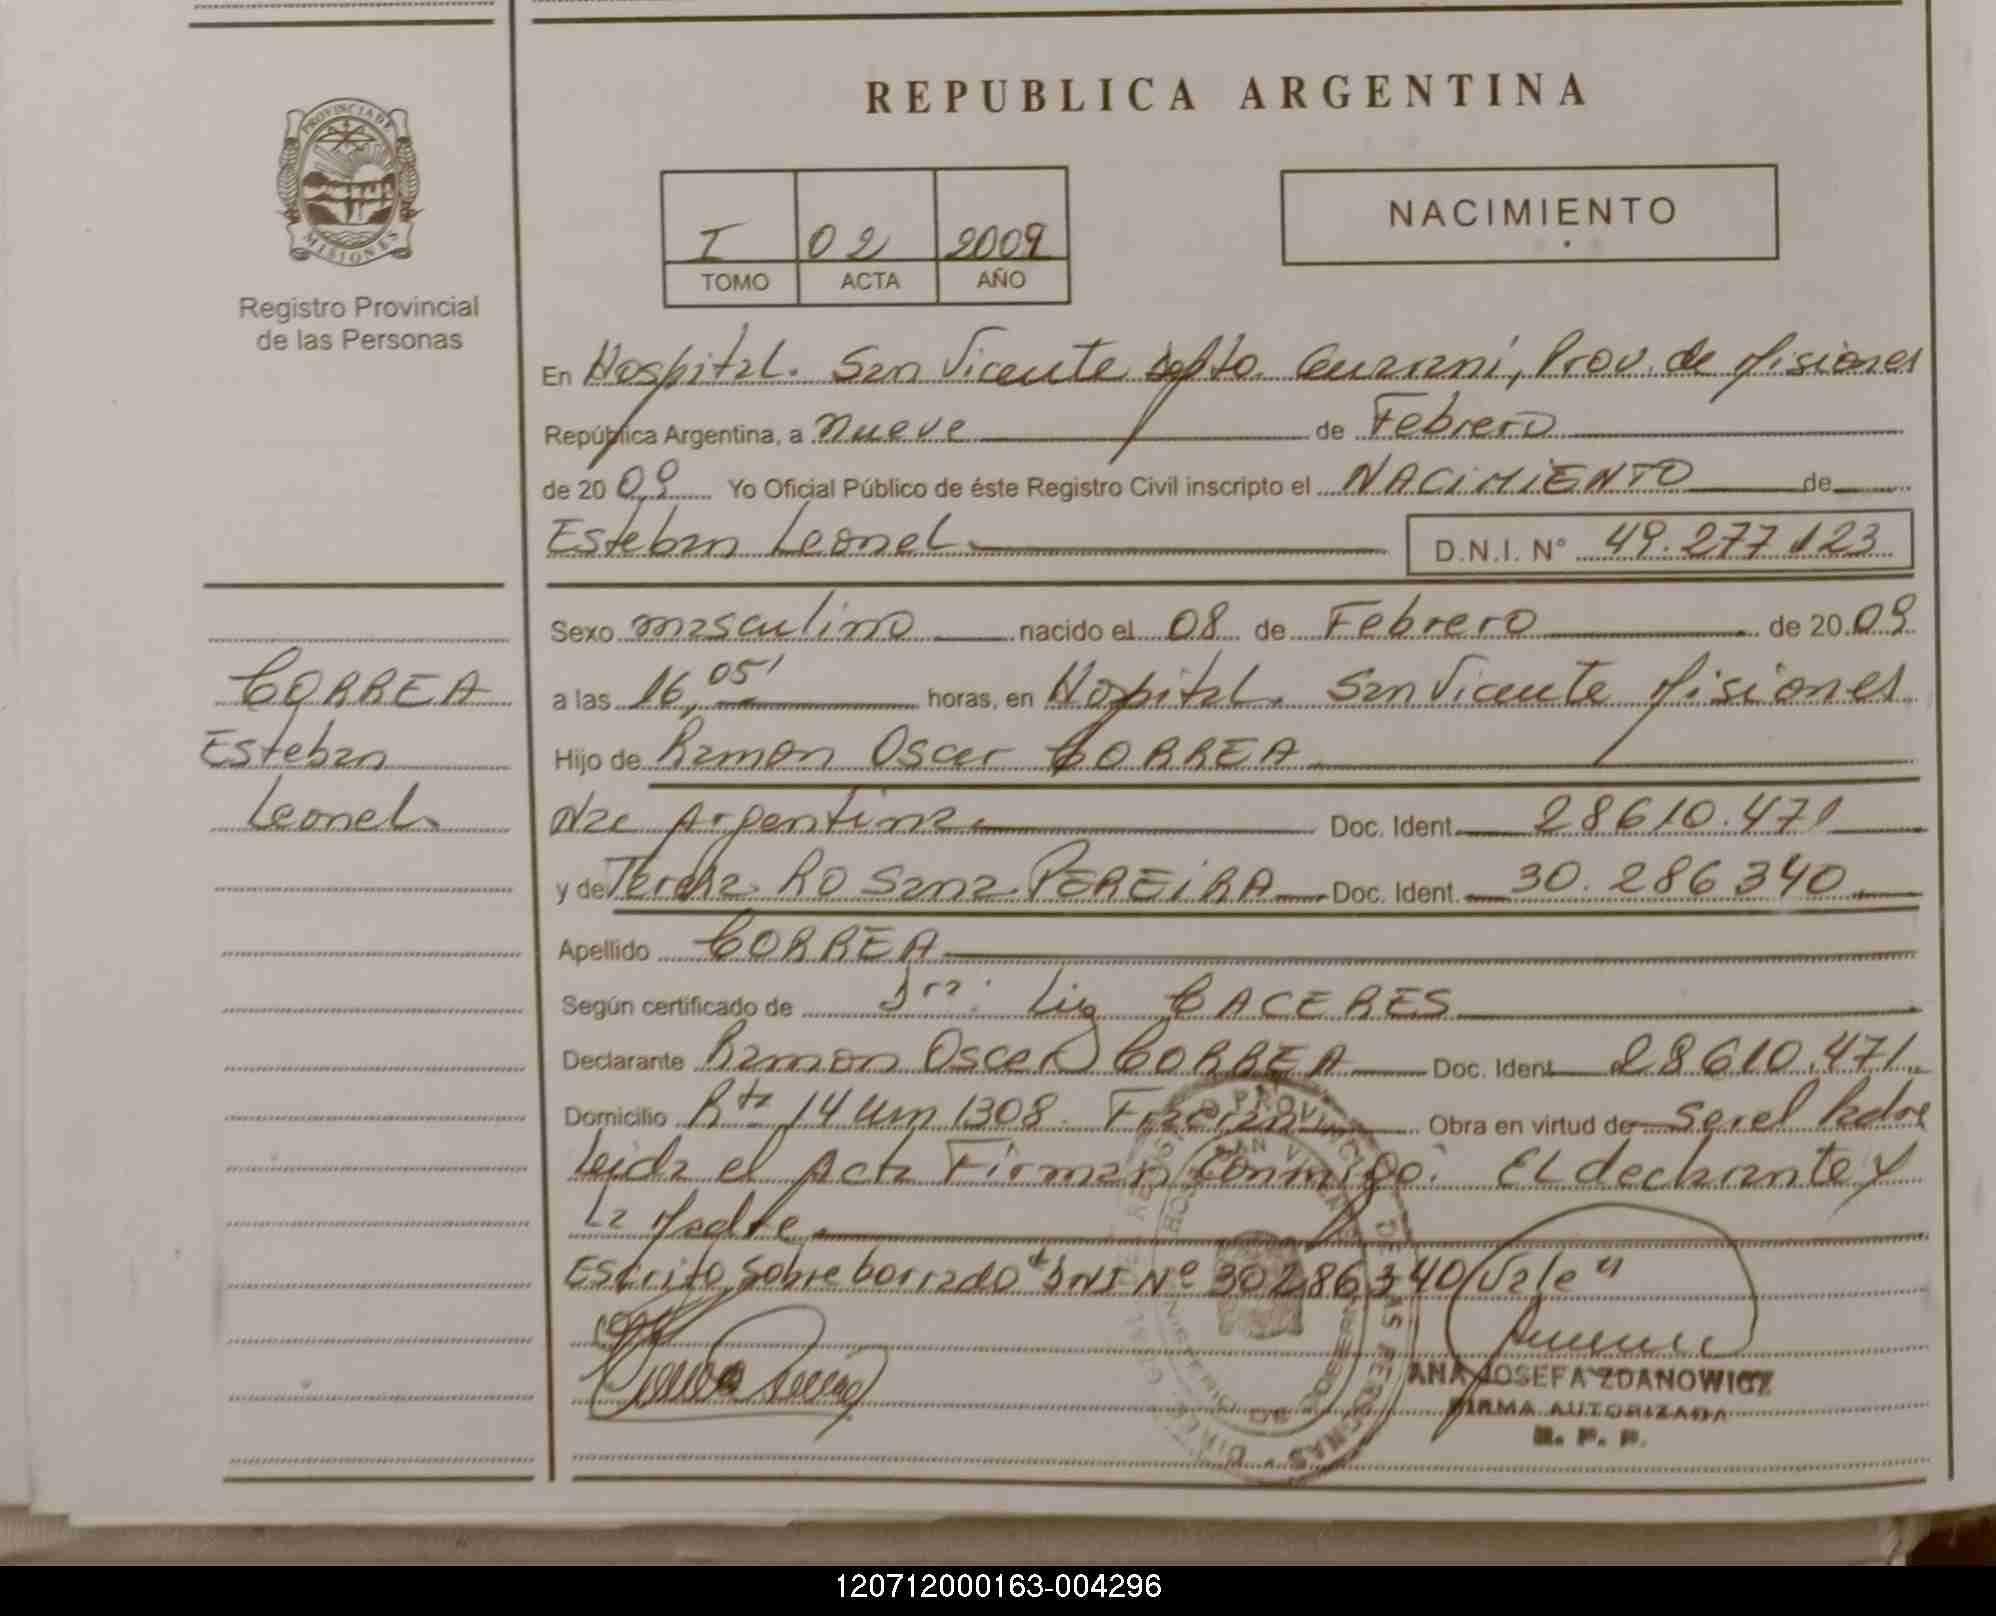 PROVINCIA DE
MISIONES
Registro Provincial
de las Personas
REPUBLICA ARGENTINA
I 02 2009
TOMO ACTA AÑO
NACIMIENTO
En Hospital. San Vicente Depto. Guarani, Prov. de Misiones
República Argentina, a nueve de Febrero
de 20 09 Yo Oficial Público de éste Registro Civil inscripto el NACIMIENTO de
Esteban Leonel D.N.I. N° 49.277.123
Sexo masculino nacido el 08 de Febrero de 20 09
CORREA
a las 16,05' horas, en Hospital. San Vicente Misiones
Esteban
Hijo de Ramon Oscar CORREA
Leonel
Nac Argentina Doc. Ident. 28610.471
y de Rosana PEREIRA Doc. Ident. 30.286340
Apellido CORREA
Según certificado de Dra. Liz CACERES
Declarante Ramon Oscar CORREA Doc. Ident. 28610.471
Domicilio Rta 14 Km 1308. Fracran Obra en virtud de Ser el Padre
Leida el Acta Firman Conmigo. El declarante y
La Madre
Escrito sobre borrado "DNI Nº 30286340 Vale"
ANA JOSEFA ZDANOWICZ
FIRMA AUTORIZADA
R. P. P.
120712000163-004296